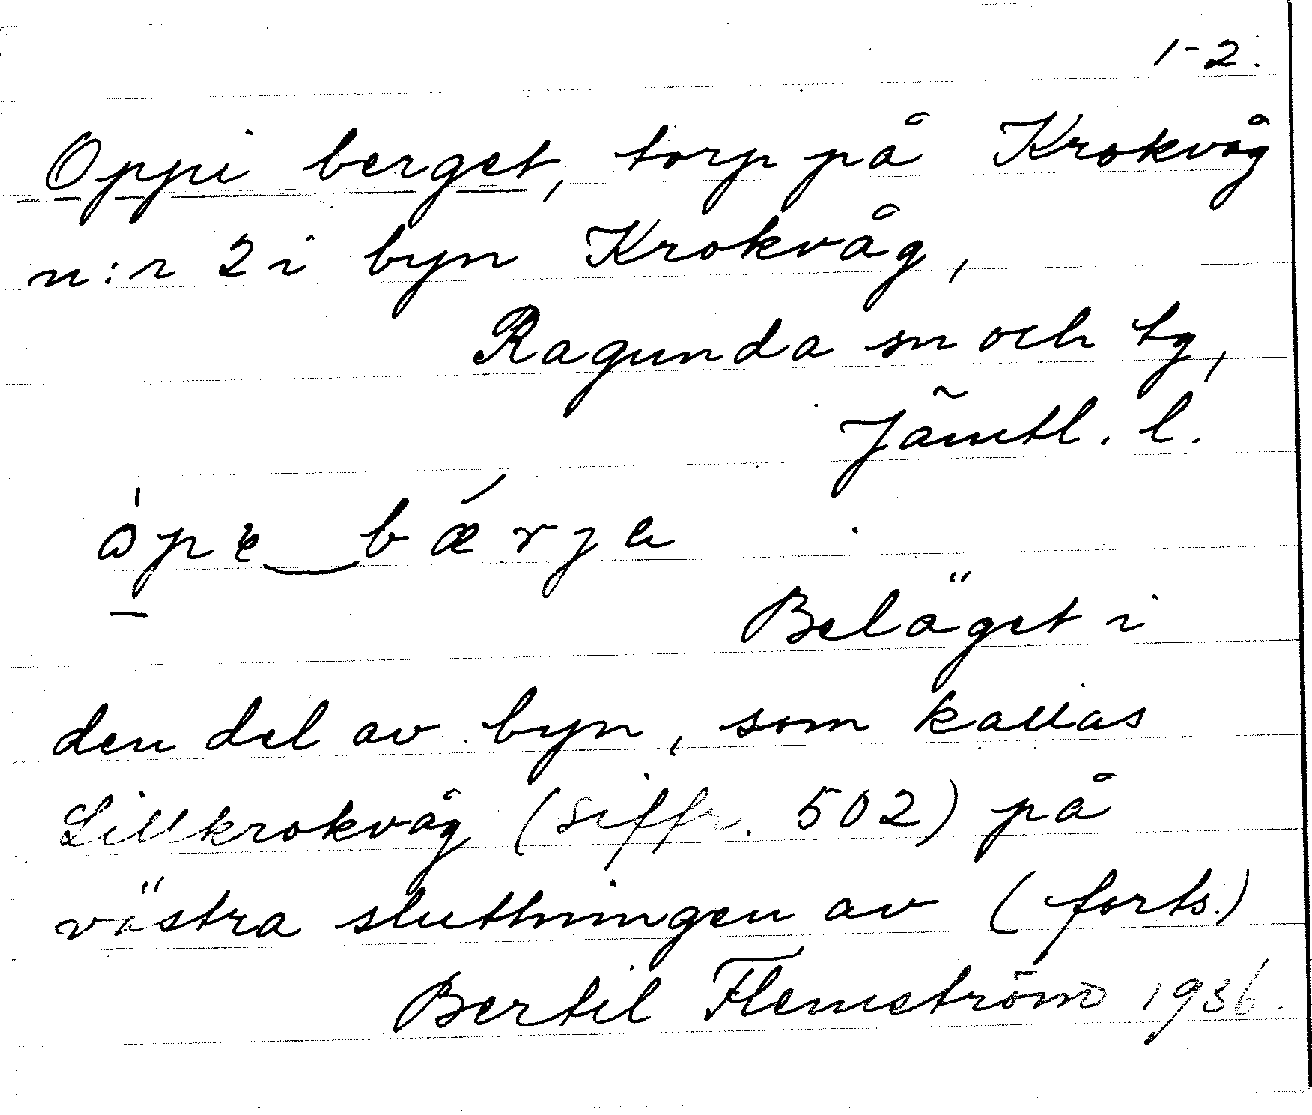 1-2.
Oppi berget, torp på Krokvåg
n:r 2 i byn Krokvåg,
Ragunda sn och tg,
Jämtl. l.
Beläget i
den del av byn, som kallas
Lillkrokvåg (siffr. 502) på
västra sluttningen av (forts.)
Bertil Flemström 1936.